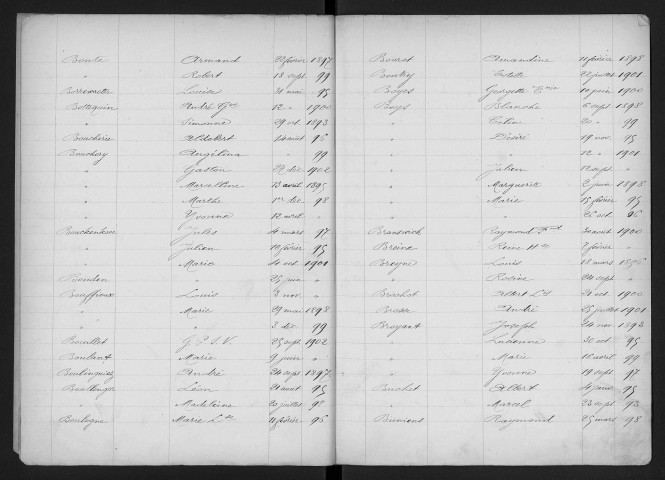 Bonte Armand 22 février 1897
" Robert 18 sept 99
Louise 31 mai 95
Bottequin André 12 " 1900
" Simonne 29 oct 1893
Boucherie Aldebert 96
Bouchery Angélina " 99
" Gaston 1902
" Marcelline 13 août 1895
" Marthe 1er déc 98
" Yvonne 12 avril "
Jules 4 mars 97
" Julien 10 février 95
" Marie 4 oct 1901
Boudon " 25 juin "
Bouffioux Louis 3 nov "
" Marie 29 mai 1898
" " 2 déc 99
Bouillet G. P. J. V. 25 sept 1902
Boulant Marie 9 juin "
Boulinguiez André 20 sept 1897
Boullenger Léon 95
" Madeleine 23 juillet 98
Boulogne Marie 11 février 96
Bouret Amandine 11 février 1898
Boutry Estelle 1901
Boyes Georgette 10 juin 1900
Boys Blanche 6 sept 1898
" Céline 20 " 99
" Désiré 19 nov 95
" " 12 " 1901
" Julien 12 sept "
" Marguerite 2 juin 1898
" Marie 15 février 95
" " 26 oct 96
Branswick Raymond 30 août 1900
Breine Reine 2 février "
Breyne Louis 18 mars 1896
" 24 sept "
Brochot Albert 21 oct 1900
Brosse André 25 juillet 1901
Broyant Joseph 24 nov 1893
" Lucienne 30 oct 95
" Marie 16 avril 99
" Yvonne 19 sept 97
Bruchet Albert 4 juin 95
" Marcel 23 sept 93
Bruniens Raymond 25 mars 98